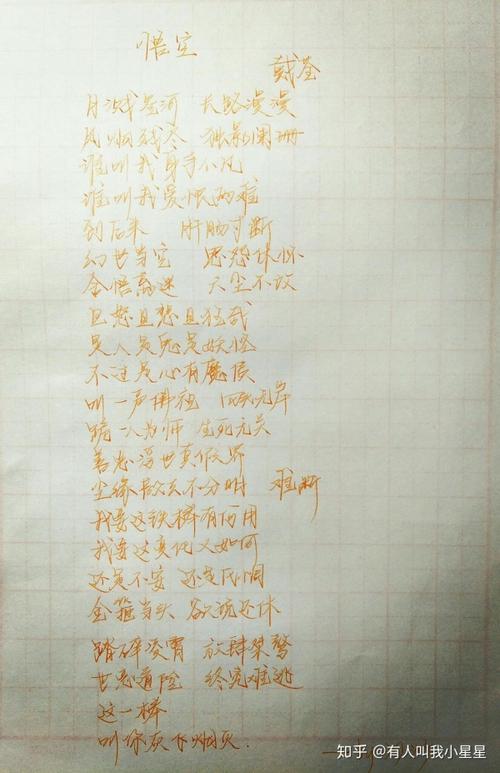 悟空
戴荃
月溅星河 长路漫漫
风烟残尽 独影阑珊
谁叫我身手不凡
谁叫我爱恨两难
到后来 肝肠寸断
幻世当空 恩怨休怀
舍悟离迷 六尘不改
且怒且悲且狂哉
是人是鬼是妖怪
不过是心有魔债
叫一声佛祖 回头无岸
跪一人为师 生死无关
善恶浮世真假界
尘缘散聚不分明 难断
我要这铁棒有何用
我要这变化又如何
还是不安 还是氐惆
金箍当头 欲说还休
踏碎凌霄 放肆桀骜
世恶道险 终究难逃
这一棒
叫你灰飞烟灭
知乎 @有人叫我小星星